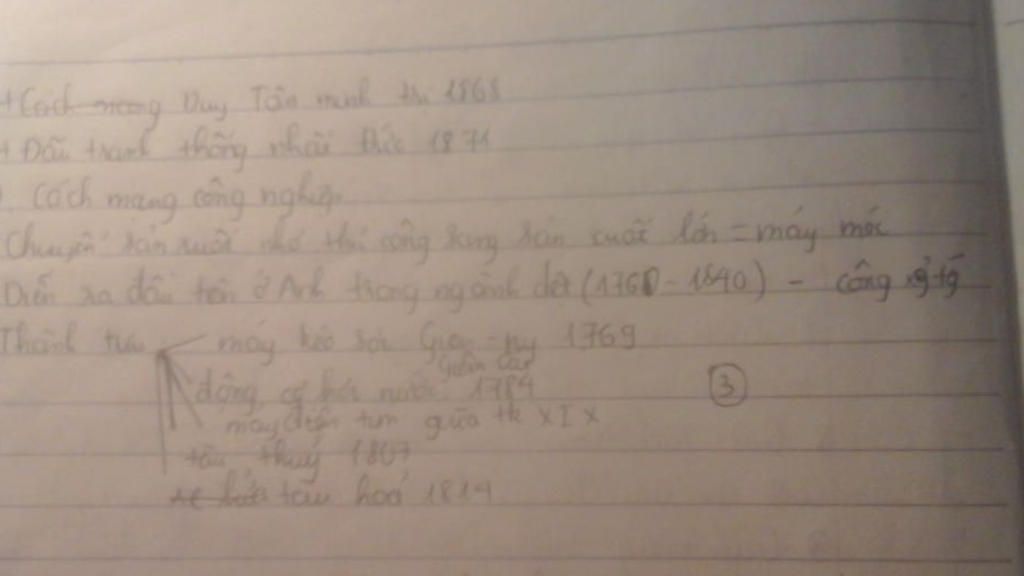 + Cách mạng Duy Tân minh trị 1868
+ Đấu tranh thống nhất Đức 1871
Cách mạng công nghiệp
Chuyển sản xuất nhỏ thủ công sang sản xuất lớn = máy móc
Diễn ra đầu tiên ở Anh trong ngành dệt (1760 - 1840) -
Thành tựu máy kéo sợi Gien-ny 1769
động cơ hơi nước 1784
máy điện tín giữa tk XIX
tàu thuỷ 1807
tàu hoả 1814
3